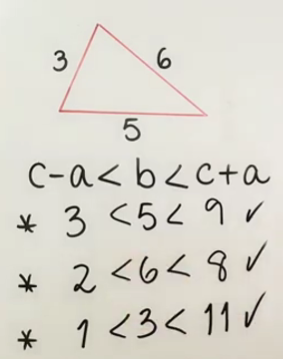 3
6
5
c-a<b<c+a
* 3 <5< 9 ✓
* 2 <6< 8 ✓
* 1 <3< 11 ✓